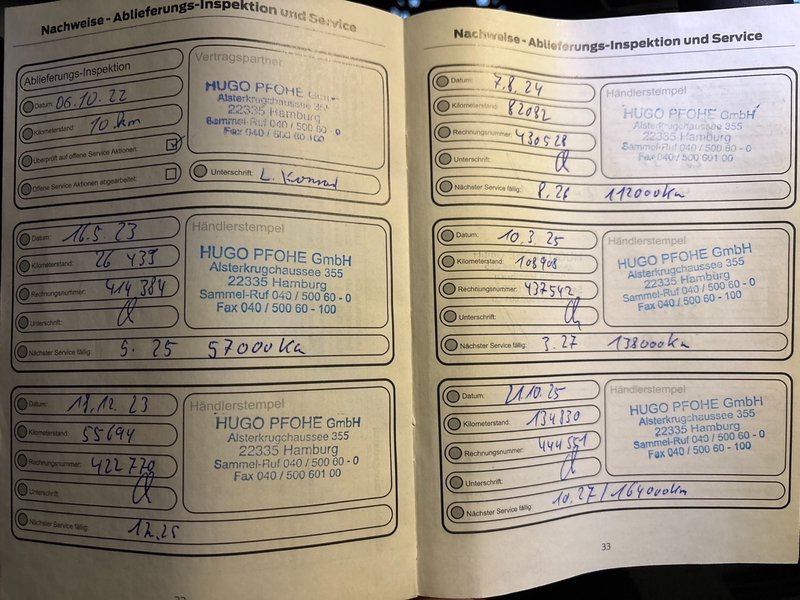 Nachweise - Ablieferungs-Inspektion und Service
Ablieferungs-Inspektion
Datum: 06.10.22
Kilometerstand: 10 km
Überprüft auf offene Service Aktionen:
Offene Service Aktionen abgearbeitet:
Vertragspartner
HUGO PFOHE
Alsterkrugchaussee 355
22335 Hamburg
Sammel-Ruf 040 / 500 60 - 0
Fax 040 / 500 60 100
Unterschrift: L. Konrad
Datum: 16.5.23
Kilometerstand: 26 439
Rechnungsnummer: 414 384
Unterschrift:
Händlerstempel
HUGO PFOHE GmbH
Alsterkrugchaussee 355
22335 Hamburg
Sammel-Ruf 040 / 500 60 - 0
Fax 040 / 500 60 - 100
Nächster Service fällig: 5.25 57000km
Datum: 12.23
Kilometerstand: 55694
Rechnungsnummer: 422770
Unterschrift:
Händlerstempel
HUGO PFOHE GmbH
Alsterkrugchaussee 355
22335 Hamburg
Sammel-Ruf 040 / 500 60 - 0
Fax 040 / 500 601 00
Nächster Service fällig: 12.25
Nachweise - Ablieferungs-Inspektion und Service
Datum: 7.8.24
Kilometerstand: 82082
Rechnungsnummer: 430528
Unterschrift:
Händlerstempel
HUGO PFOHE GmbH
Alsterkrugchaussee 355
22335 Hamburg
Sammel-Ruf 040 / 500 60 - 0
Fax 040 / 500 601 00
Nächster Service fällig: 8.26 112000km
Datum: 10.3.25
Kilometerstand: 108908
Rechnungsnummer: 437542
Unterschrift:
Händlerstempel
HUGO PFOHE GmbH
Alsterkrugchaussee 355
22335 Hamburg
Sammel-Ruf 040 / 500 60 - 0
Fax 040 / 500 60 - 100
Nächster Service fällig: 3.27 138000km
Datum: 21.10.25
Kilometerstand: 134830
Rechnungsnummer: 444551
Unterschrift:
Händlerstempel
HUGO PFOHE GmbH
Alsterkrugchaussee 355
22335 Hamburg
Sammel-Ruf 040 / 500 60 - 0
Fax 040 / 500 60 - 100
Nächster Service fällig: 10.27 / 164000km
33